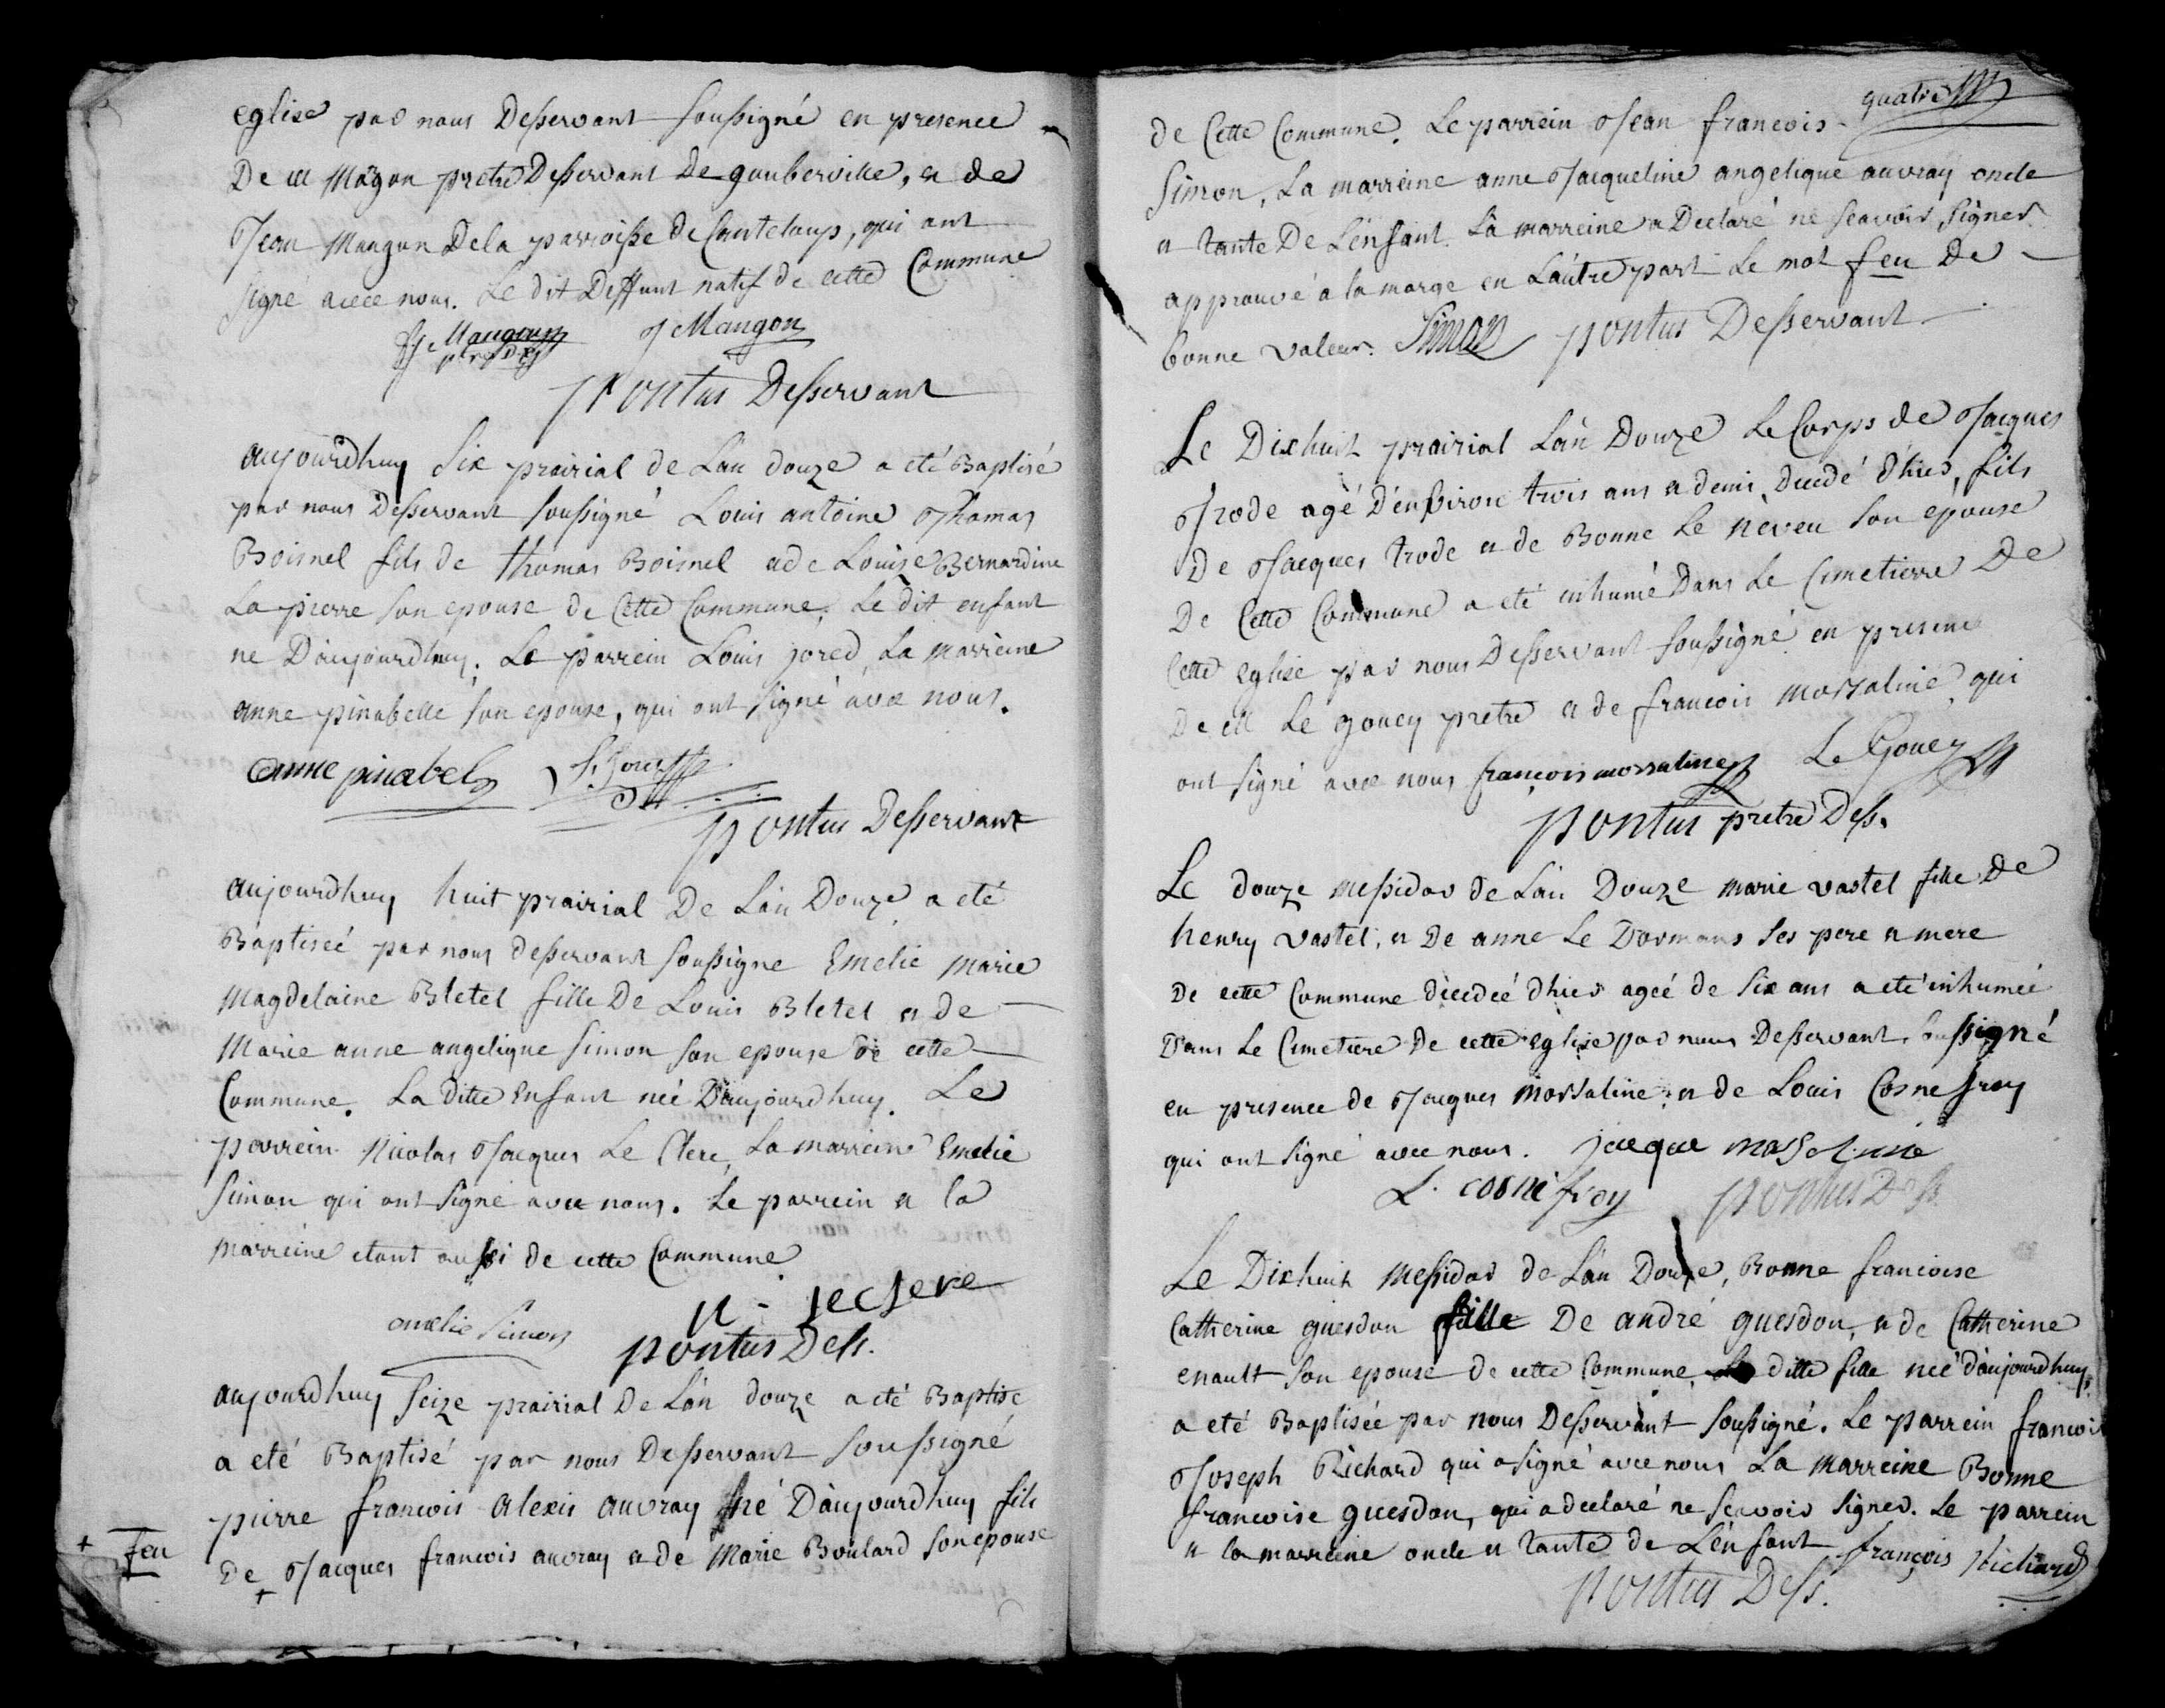 eglise par nous Desservant soussigné en presence
De M Mangon pretre Desservant De gouberville, et de
Jean Mangon De la parroisse de Canteloup, qui ont
signé avec nous. Le dit Deffunt natif de cette Commune
Mangon J Mangon
ptre des
pontus Desservant
aujourdhuy six prairial de L'an douze a eté Baptisé
par nous Desservant soussigné Louis antoine Thomas
Boisnel fils de thomas Boisnel et de Louise Bernardine
La pierre son epouse de Cette Commune. Le dit enfant
ne D'aujourdhuy. Le parrein Louis jored, La marreine
anne pinabelle son epouse, qui ont signé avec nous.
anne pinabel
pontus Desservant
aujourdhuy huit prairial De L'an Douze a eté
Baptiseé par nous desservant soussigne Emelie Marie
Magdelaine Bletel fille De Louis Bletel et de
Marie anne angelique Simon son epouse de cette
Commune. La ditte Enfant neé D'aujourdhuy. Le
parrein Nicolas Jacques Le Clerc, La marreine Emelie
Simon qui ont signé avec nous. Le parrein et la
marreine etant aussi de cette Commune
amelie Simon N. leclere
pontus Dess.
aujourdhuy seize prairial De L'an douze a eté Baptisé
a eté Baptisé par nous Desservant soussigné
pierre francois Alexis auvray né D'aujourdhuy fils
+ feu
De + Jacques francois auvray et de Marie Boulard son epouse
quatre
de Cette Commune. Le parrein Jean francois
Simon, La marreine anne Jacqueline angelique auvray oncle
et tante De L'enfant. La marreine a Declaré ne scavoir signer.
approuvé a la marge en L'autre part Le mot feu De
bonne valeur. Simon pontus Desservant
Le Dixhuit prairial L'an Douze Le Corps de Jacques
Trode agé D'environ trois ans et demi, Decedé d'hier, fils
De Jacques trode et de Bonne Le neveu son épouse
De Cette Commune a eté inhumé Dans Le Cimetierre De
Cette eglise par nous Desservant soussigné en presence
De M Le gouey pretre et de francois morsaline qui
ont signé avec nous françois morsaline Le Gouey
pontus pretre Dess.
Le douze messidor de L'an Douze marie vastel fille De
henry vastel, et De anne Le Dormans ses pere et mere
De cette Commune décédeé d'hier ageé de six ans a eté inhumeé
Dans Le Cimetiere De cette eglise par nous Desservant, soussigné
en presence de Jacques Morsaline et de Louis Cosnefroy
qui ont signé avec nous. jacque morsaline
L. cosnefroy pontus Dess
Le Dixhuit Messidor de L'an Douze, Bonne francoise
Catherine guesdon fille De andré guesdon, et de Catherine
enault son epouse de cette Commune, La ditte fille neé d'aujourdhuy,
a eté Baptisée par nous Desservant soussigné. Le parrein francois
Joseph Richard qui a signé avec nous La marreine Bonne
francoise guesdon, qui a declaré ne scavoir signer. Le parrein
et la marreine oncle et tante de L'enfant françois Richard
pontus Dess.